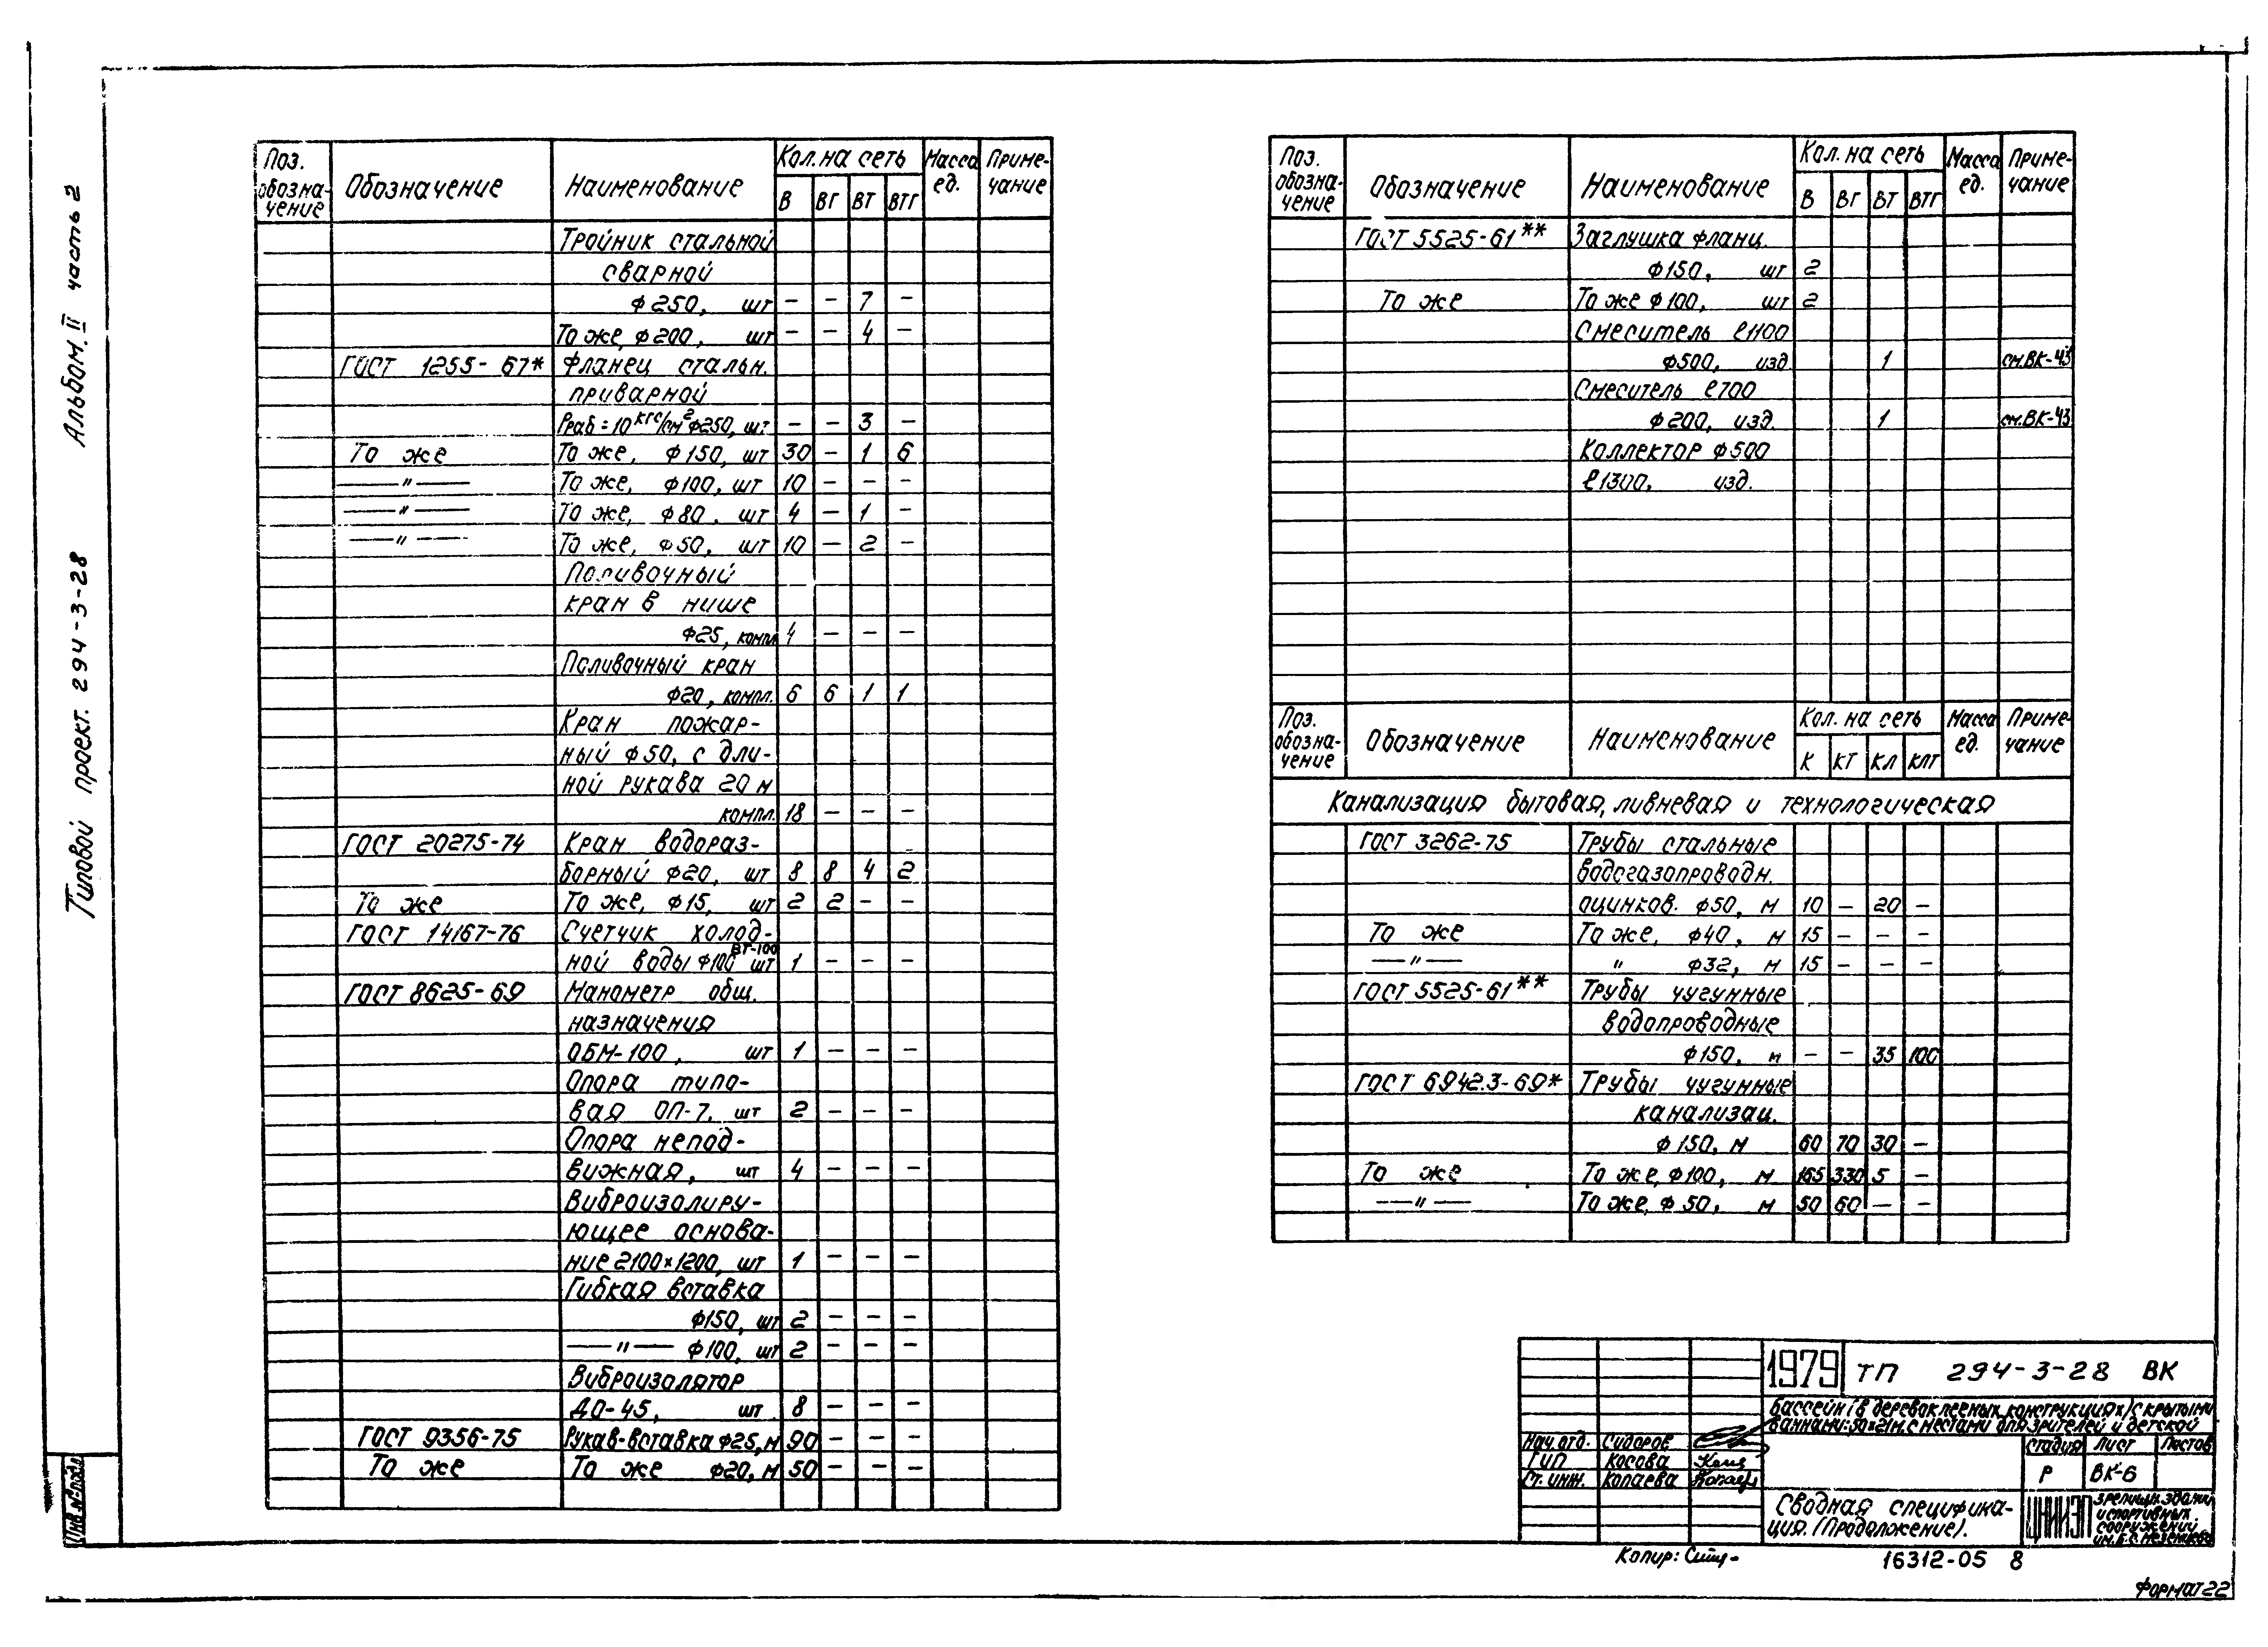 Альбом. II часть 2
Типовой проект. 294-3-28
Инв.№подл
Поз. обозна-чение Обозначение Наименование Кол. на сеть Масса ед. Приме-чание
В ВГ ВТ ВТГ
Тройник стальной
сварной
ф250, шт – – 7 –
То же, ф200, шт – – 4 –
ГОСТ 1255-67* Фланец стальн.
приварной
Рраб=10 кгс/см² ф250, шт – – 3 –
То же То же, ф150, шт 30 – 1 6
—"— То же, ф100, шт 10 – – –
—"— То же, ф80, шт 4 – 1 –
—"— То же, ф50, шт 10 – 2 –
Поливочный
кран в нише
ф25, компл 4 – – –
Поливочный кран
ф20, компл. 6 6 1 1
Кран пожар-
ный ф50, с дли-
ной рукава 20 м
компл. 18 – – –
ГОСТ 20275-74 Кран водораз-
борный ф20, шт 8 8 4 2
То же То же, ф15, шт 2 2 – –
ГОСТ 14167-76 Счетчик холод-
ной воды ф100 ВТ-100 шт 1 – – –
ГОСТ 8625-69 Манометр общ.
назначения
ОБМ-100, шт 1 – – –
Опора типо-
вая ОП-7, шт 2 – – –
Опора непод-
вижная, шт 4 – – –
Виброизолиру-
ющее основа-
ние 2100×1200, шт 1 – – –
Гибкая вставка
ф150, шт 2 – – –
—"— ф100, шт 2 – – –
Виброизолятор
ДО-45, шт 8 – – –
ГОСТ 9356-75 Рукав-вставка ф25, м 90 – – –
То же То же ф20, м 50 – – –
Поз. обозна-чение Обозначение Наименование Кол. на сеть Масса ед. Приме-чание
В ВГ ВТ ВТГ
ГОСТ 5525-61** Заглушка фланц.
ф150, шт 2
То же То же ф100, шт 2
Смеситель ℓ1100
ф500, изд 1 см.ВК-43
Смеситель ℓ700
ф200, изд. 1 см.ВК-43
Коллектор ф500
ℓ1300, изд.
Поз. обозна-чение Обозначение Наименование Кол. на сеть Масса ед. Приме-чание
К КТ КЛ КЛТ
Канализация бытовая, ливневая и технологическая
ГОСТ 3262-75 Трубы стальные
водогазопроводн.
оцинков. ф50, м 10 – 20 –
То же То же, ф40, м 15 – – –
—"— " ф32, м 15 – – –
ГОСТ 5525-61** Трубы чугунные
водопроводные
ф150, м – – 35 100
ГОСТ 6942.3-69* Трубы чугунные
канализац.
ф150, м 60 70 30 –
То же То же, ф100, м 165 330 5 –
—"— То же, ф50, м 50 60 – –
1979 ТП 294-3-28 ВК
Бассейн (в деревоклееных конструкциях) с крытыми
ваннами: 50×21м. с местами для зрителей и детской
Нач.отд. Сидоров
ГИП Косова
Ст. инж. Копаева
Стадия Лист Листов
Р ВК-6
Сводная специфика-
ция. (Продолжение).
ЦНИИЭП зрелищн. зданий
и спортивных
сооружений
им. Б.С. Мезенцева
Копир:
16312-05 8
Формат 22